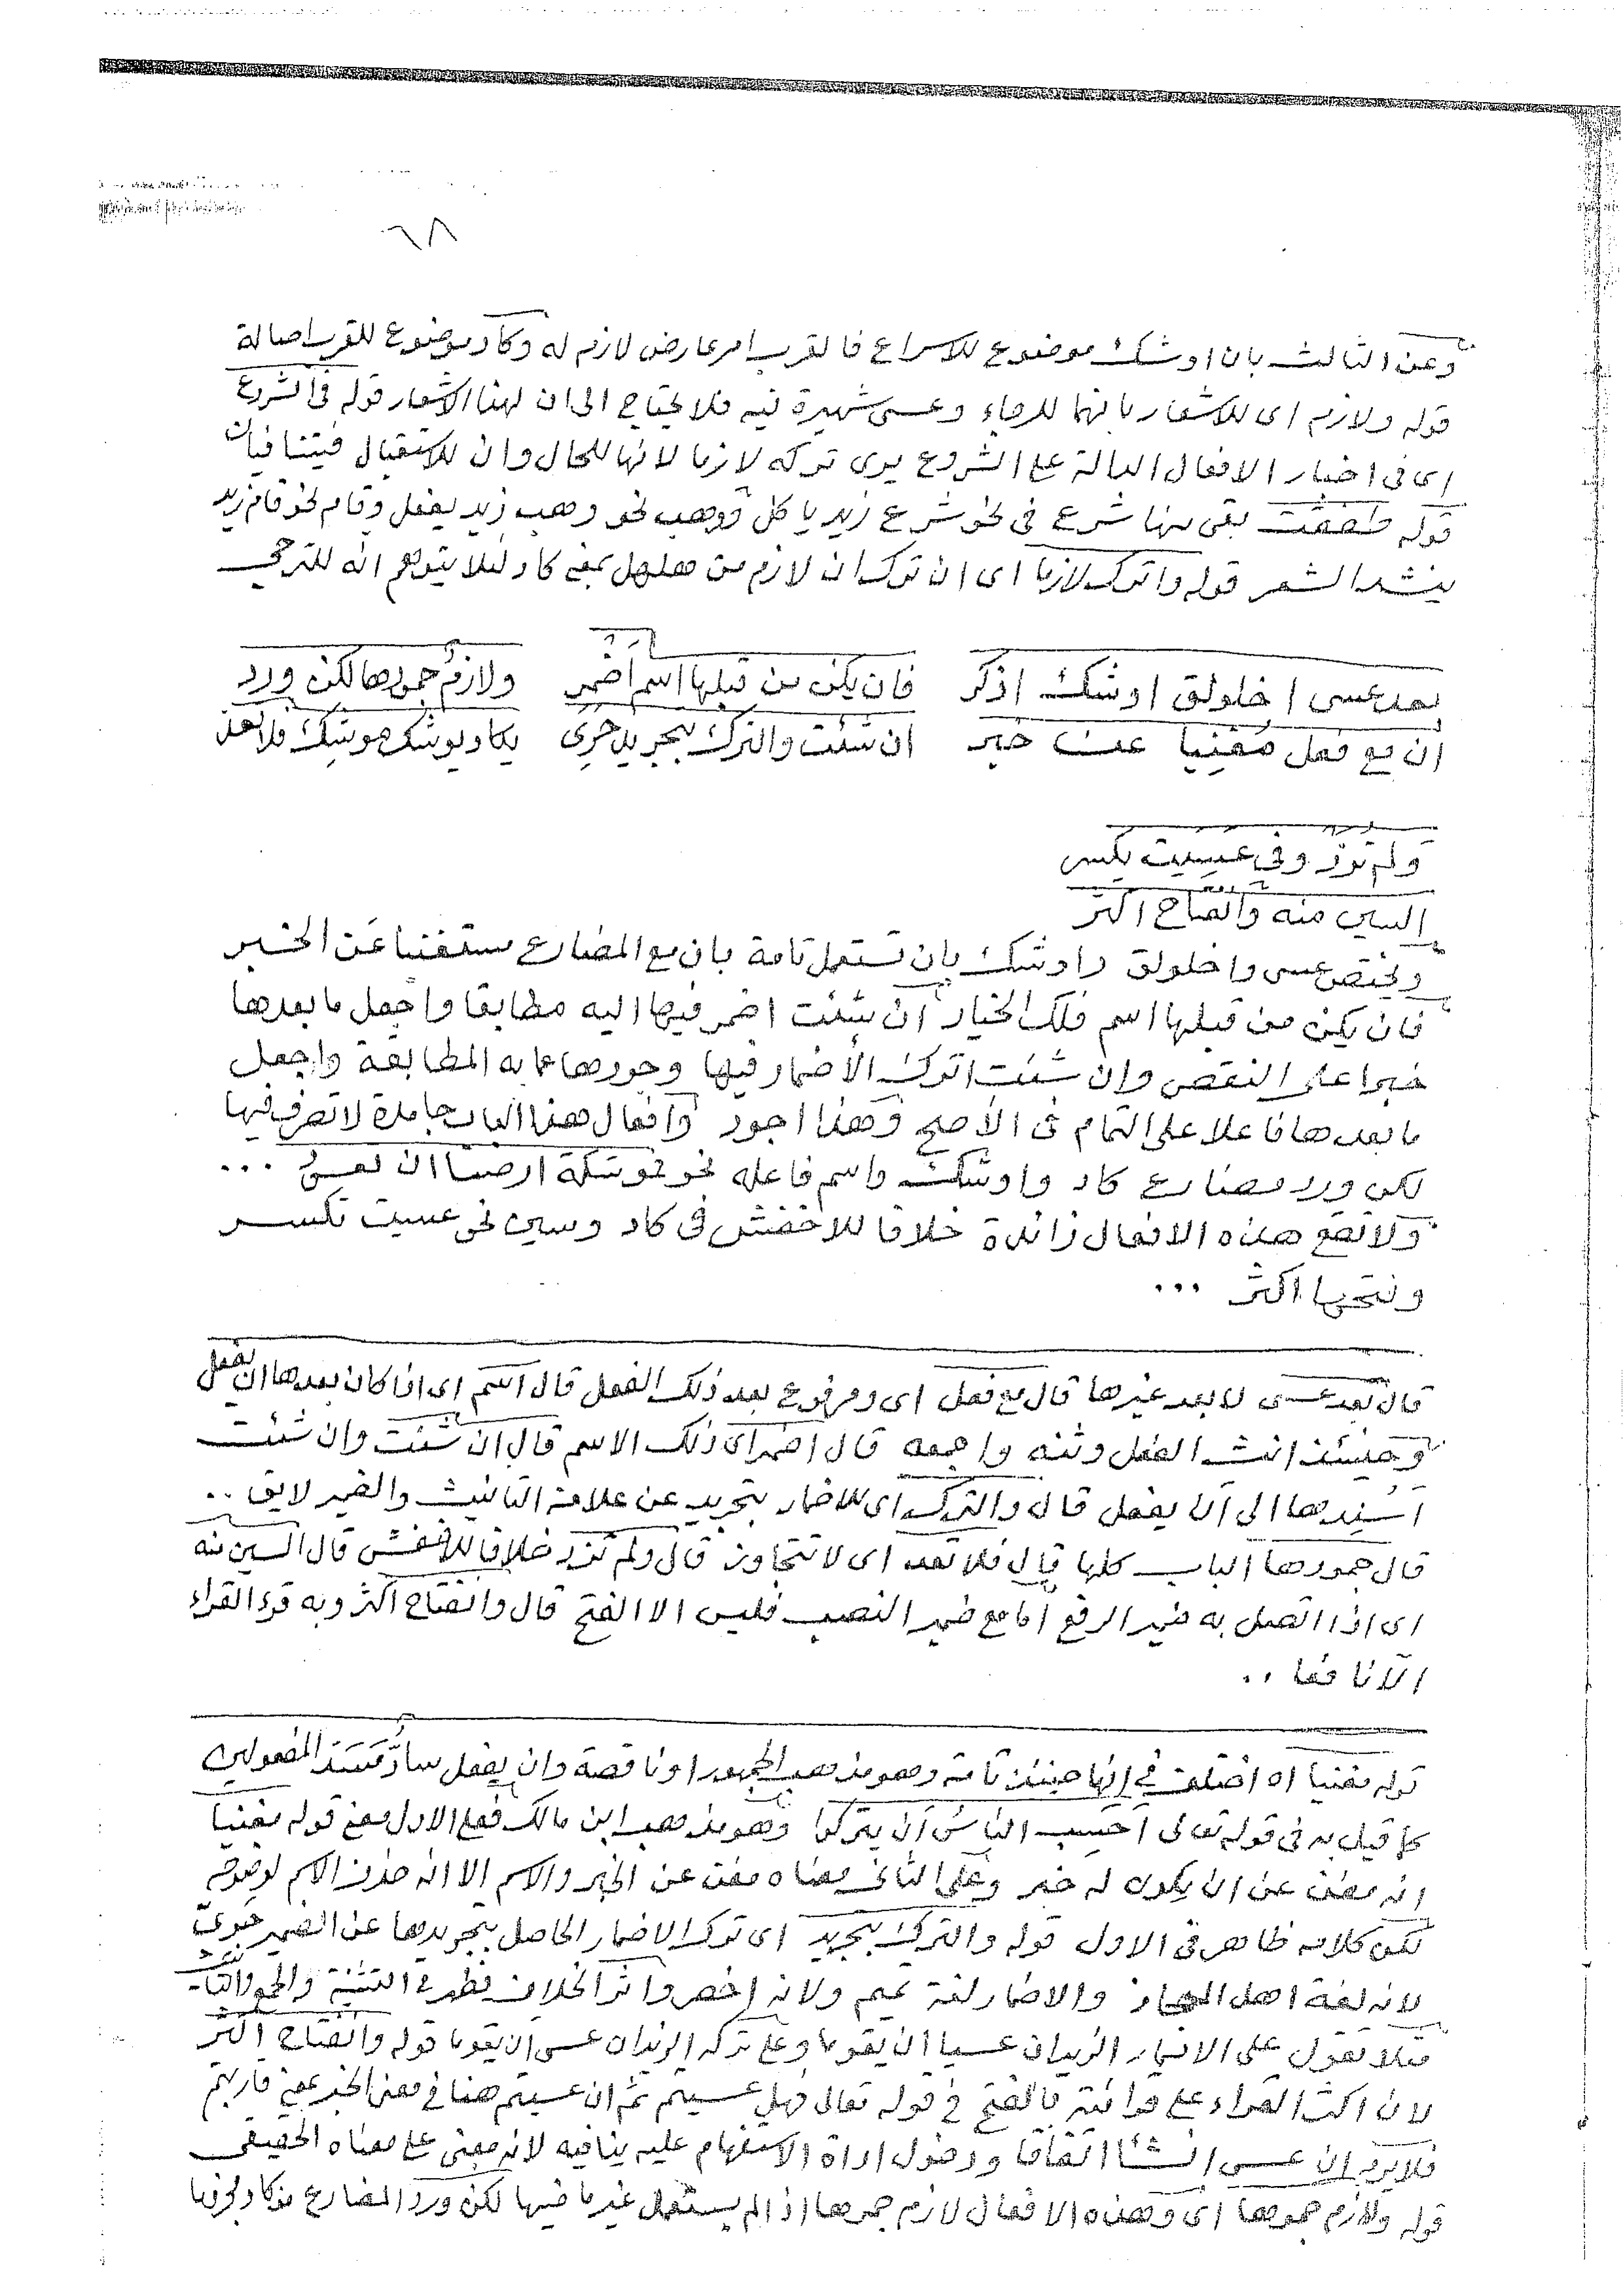 ٦٨
وعن الثالث بان اوشك موضوع للاسراع فالقرب امر عارض لازم له وكاد موضوع للقرب اصالة
قوله ولازم اى للاشعار بانهما للرجاء وعسى شهيرة فيه فلا يحتاج الى ان لهذا الاشعار قوله فى الشروع
اى فى اخبار الافعال الدالة على الشروع يرى تركه لازما لانها للحال وان للاستقبال فيتنافيان
قوله طفقت بقى منها شرع فى نحو شرع زيد ياكل ووهب نحو وهب زيد يفعل وقام نحو قام زيد
ينشد الشعر قوله واترك لازما اى ان ترك ان لازم من هلهل بمعنى كاد لئلا يتوهم انه للترجى
بعد عسى اخلولق اوشك اذكر فان يكن من قبلها اسم اضمر ولازم جمودها لكن ورد
ان مع فعل مُغنِيا عن خبر ان شئت والترك بتجريد حرى يكاد يوشك موشك فلا تعد
ولم تزد وفى عسيت يكسر
السين منه وانفتاح اكثر
ويختص عسى واخلولق واوشك بان تستعمل تامة بان مع المضارع مستغنيا عن الخبر
فان يكن من قبلها اسم فلك الخيار ان شئت اضمر فيها اليه مطابقا واجعل ما بعدها
خبرا على النقص وان شئت اترك الاضمار فيها وجردها عما به المطابقة واجعل
ما بعدها فاعلا على التمام فى الاصح وهذا اجود وافعال هذا الباب جامدة لا تصرف فيها
لكن ورد مضارع كاد واوشك واسم فاعله نحو موشكة ارضنا ان تعود ...
ولا تقع هذه الافعال زائدة خلافا للاخفش فى كاد وسين نحو عسيت تكسر
وفتحها اكثر ...
قال بعد عسى لا بعد غيرها قال مع فعل اى ومرفوع بعد ذلك الفعل قال اسم اى اذا كان بعدها ان يفعل
وحينئذ انث الفعل وثنه واجمعه قال اضمر اى ذلك الاسم قال ان شئت وان شئت
اسندها الى ان يفعل قال والترك اى للاضمار بتجريد عن علامة التانيث والضمير لايق ..
قال جمودها الباب كلها قال فلا تعد اى لا تتجاوز قال ولم تزد خلافا للاخفش قال السين منه
اى اذا اتصل به ضمير الرفع اما مع ضمير النصب فليس الا الفتح قال وانفتاح اكثر وبه قرء القراء
الا نافعا ..
قوله مغنيا اه اختلف فى انها حينئذ تامة وهو مذهب الجمهور او ناقصة وان يفعل سادّ مَسَدّ المفعولين
كما قيل به فى قوله تعالى احَسِب الناسُ ان يتركوا وهو مذهب ابن مالك فعلى الاول معنى قوله مغنيا
انه مغن عن ان يكون له خبر وعلى الثانى معناه مغن عن الخبر والاسم الا انه حذف الاسم لوضوحه
لكن كلامه ظاهر فى الاول قوله والترك بتجريد اى ترك الاضمار الحاصل بتجريدها عن الضمير حَرِىّ
لانه لغة اهل الحجاز والاضمار لغة تميم ولانه اخصر واثر الخلاف يظهر فى التثنية والجمع والتانيث
مثلا تقول على الاضمار الزيدان عسيا ان يقوما وعلى تركه الزيدان عسى ان يقوما قوله وانفتاح اكثر
لان اكثر القراء على قرائته بالفتح فى قوله تعالى فهل عسيتم ثم ان عسيتم هنا فى معنى الخبر بمعنى قاربتم
فلا يرد ان عسى انشاء اتفاقا ودخول اداة الاستفهام عليه ينافيه لانه مبنى على معناه الحقيقى
قوله ولازم جمودها اى وهذه الافعال لازم جمودها اذ لم يستعمل غير ماضيها لكن ورد المضارع من كاد